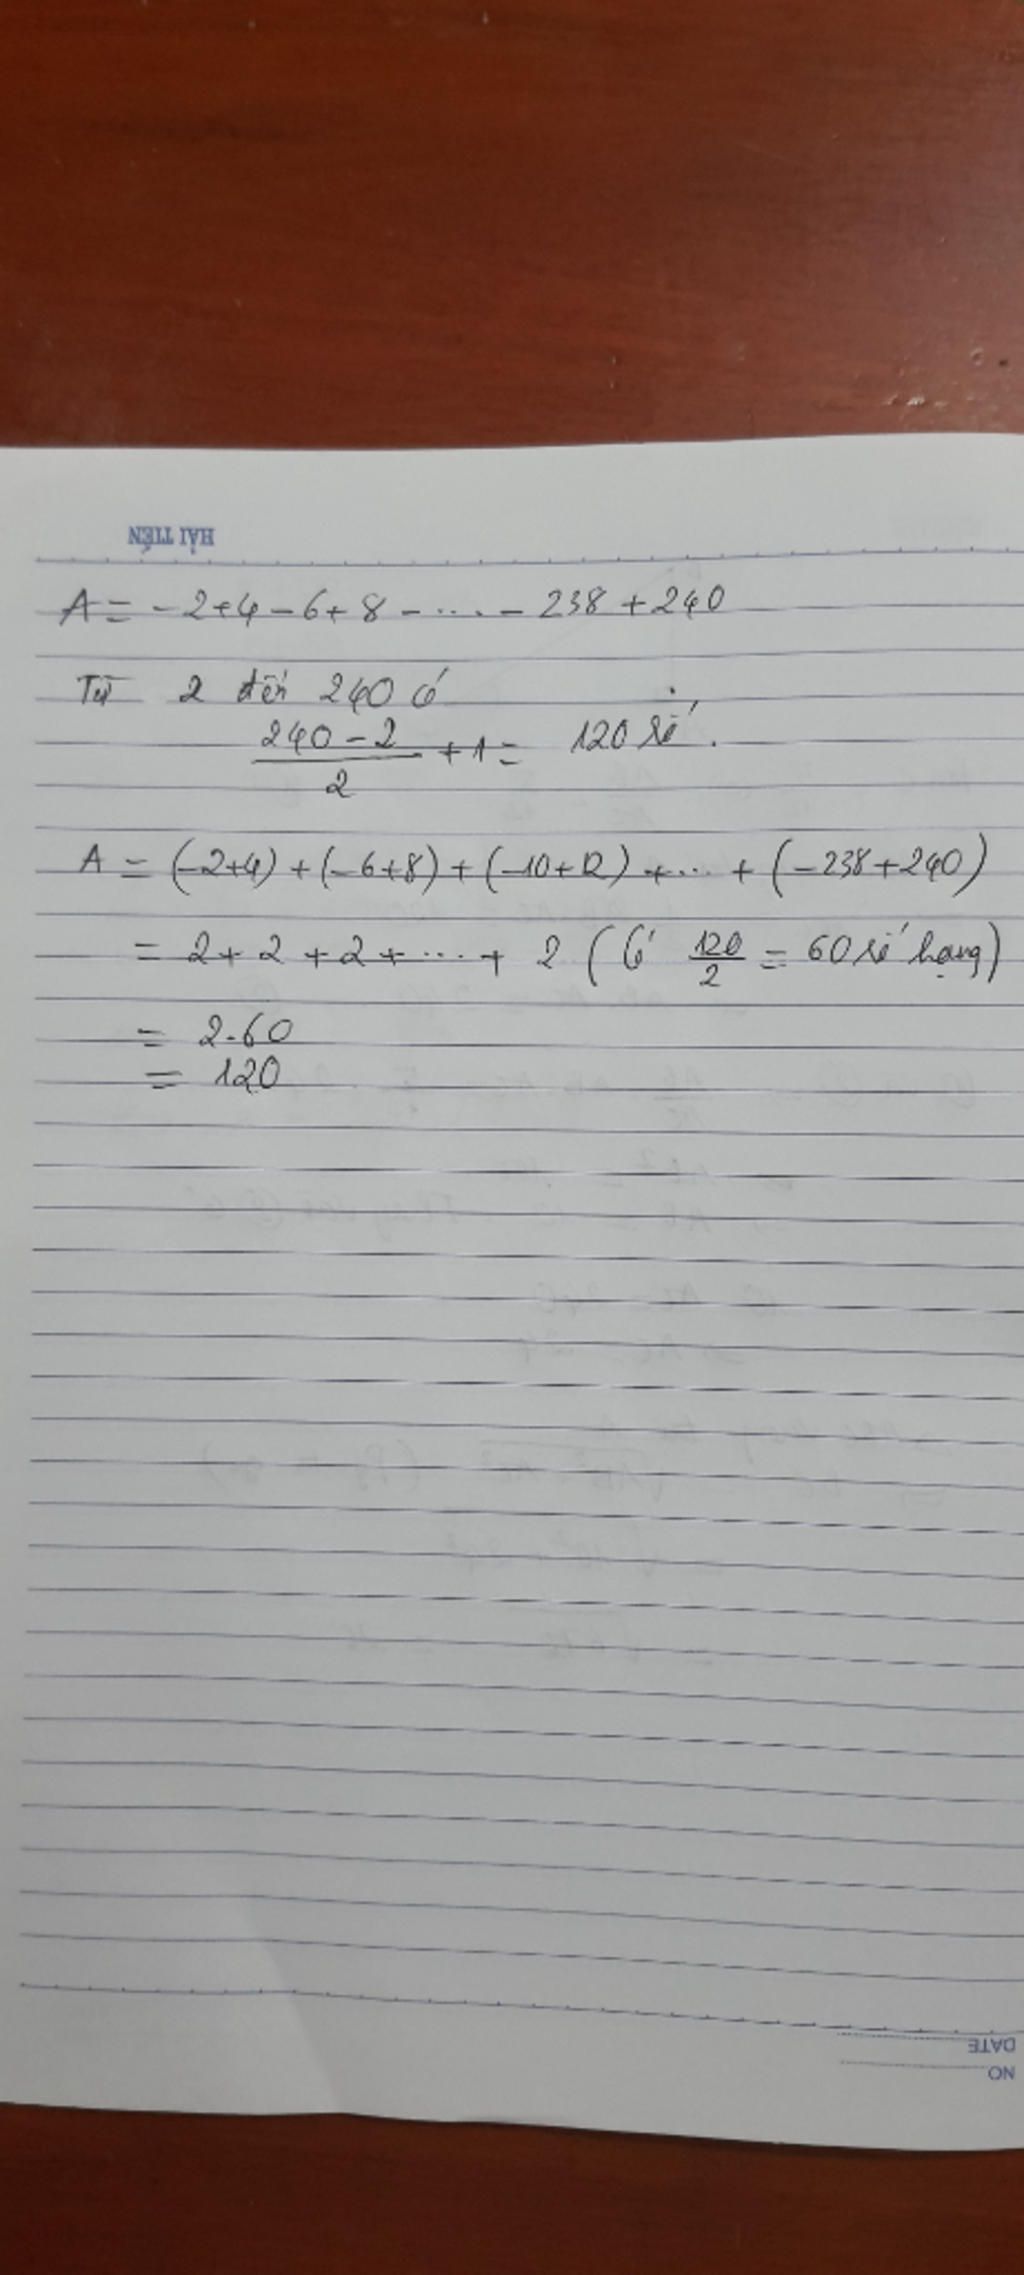 HẢI TIẾN
A = -2+4-6+8-....-238+240
Từ 2 đến 240 có
\frac{240-2}{2}+1= 120 số.
A = (-2+4)+(-6+8)+(-10+12)+...+(-238+240)
= 2+2+2+...+ 2 (Có \frac{120}{2} = 60 số hạng)
= 2.60
= 120
DATE
NO